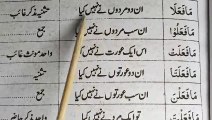 مَافَعَلَا ان دو مردوں نے نہیں کیا تثنیہ مذکر غائب
مَافَعَلُوْا ان سب مردوں نے نہیں کیا جمع
مَافَعَلَتْ اس ایک عورت نے نہیں کیا واحد مونث غائب
مَافَعَلَتَا ان دو عورتوں نے نہیں کیا تثنیہ
مَافَعَلْنَ ان سب عورتوں نے نہیں کیا جمع